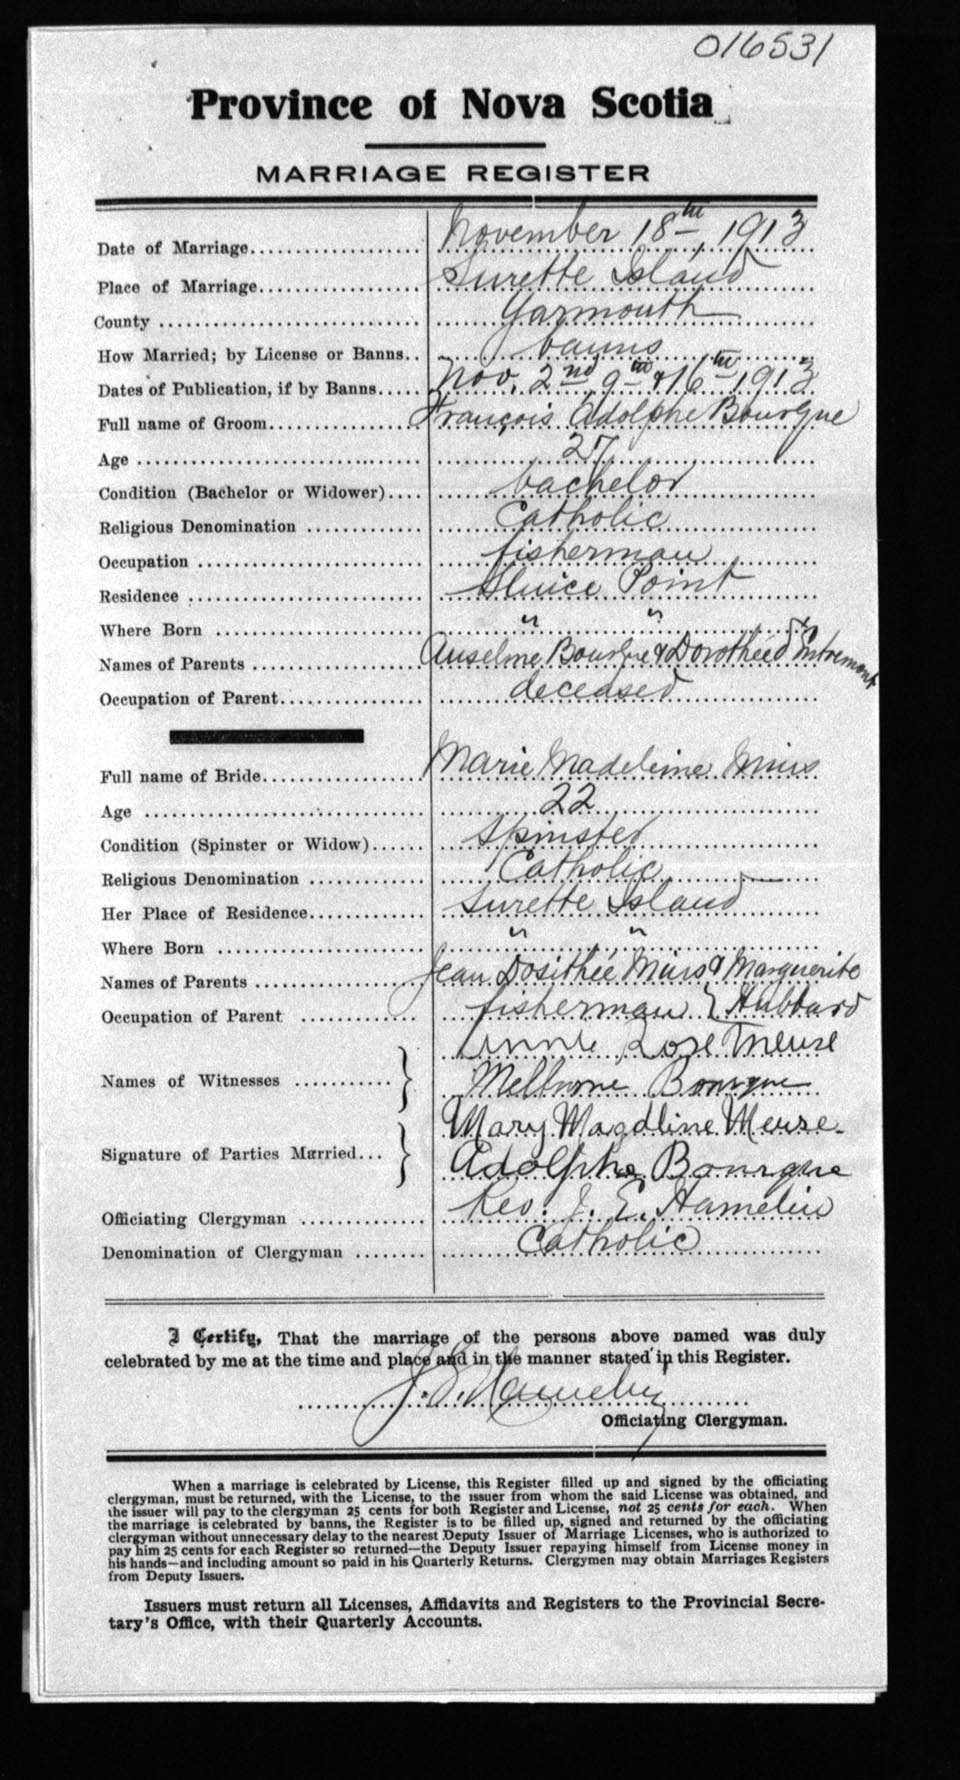 016531
Province of Nova Scotia
MARRIAGE REGISTER
Date of Marriage November 18th, 1913
Place of Marriage Surette Island
County Yarmouth
How Married; by License or Banns banns
Dates of Publication, if by Banns Nov. 2nd, 9th & 16th, 1913
Full name of Groom François Adolphe Bourque
Age 27
Condition (Bachelor or Widower) bachelor
Religious Denomination Catholic
Occupation fisherman
Residence Sluice Point
Where Born " "
Names of Parents Anselme Bourque & Dorothée d'Entremont
Occupation of Parent deceased
Full name of Bride Marie Madeleine Mius
Age 22
Condition (Spinster or Widow) Spinster
Religious Denomination Catholic
Her Place of Residence Surette Island
Where Born " "
Names of Parents Jean Dosithée Mius & Marguerite
Occupation of Parent fisherman } Hubbard
Names of Witnesses } Annie Rose Meuse
Melburne Bourque
Signature of Parties Married } Mary Magdline Meuse.
Adolphe Bourque
Officiating Clergyman Rev. J. E. Hamelin
Denomination of Clergyman Catholic
I Certify, That the marriage of the persons above named was duly
celebrated by me at the time and place and in the manner stated in this Register.
J. E. Hamelin
Officiating Clergyman.
When a marriage is celebrated by License, this Register filled up and signed by the officiating
clergyman, must be returned, with the License, to the issuer from whom the said License was obtained, and
the issuer will pay to the clergyman 25 cents for both Register and License, not 25 cents for each. When
the marriage is celebrated by banns, the Register is to be filled up, signed and returned by the officiating
clergyman without unnecessary delay to the nearest Deputy Issuer of Marriage Licenses, who is authorized to
pay him 25 cents for each Register so returned—the Deputy Issuer repaying himself from License money in
his hands—and including amount so paid in his Quarterly Returns. Clergymen may obtain Marriages Registers
from Deputy Issuers.
Issuers must return all Licenses, Affidavits and Registers to the Provincial Secre-
tary's Office, with their Quarterly Accounts.